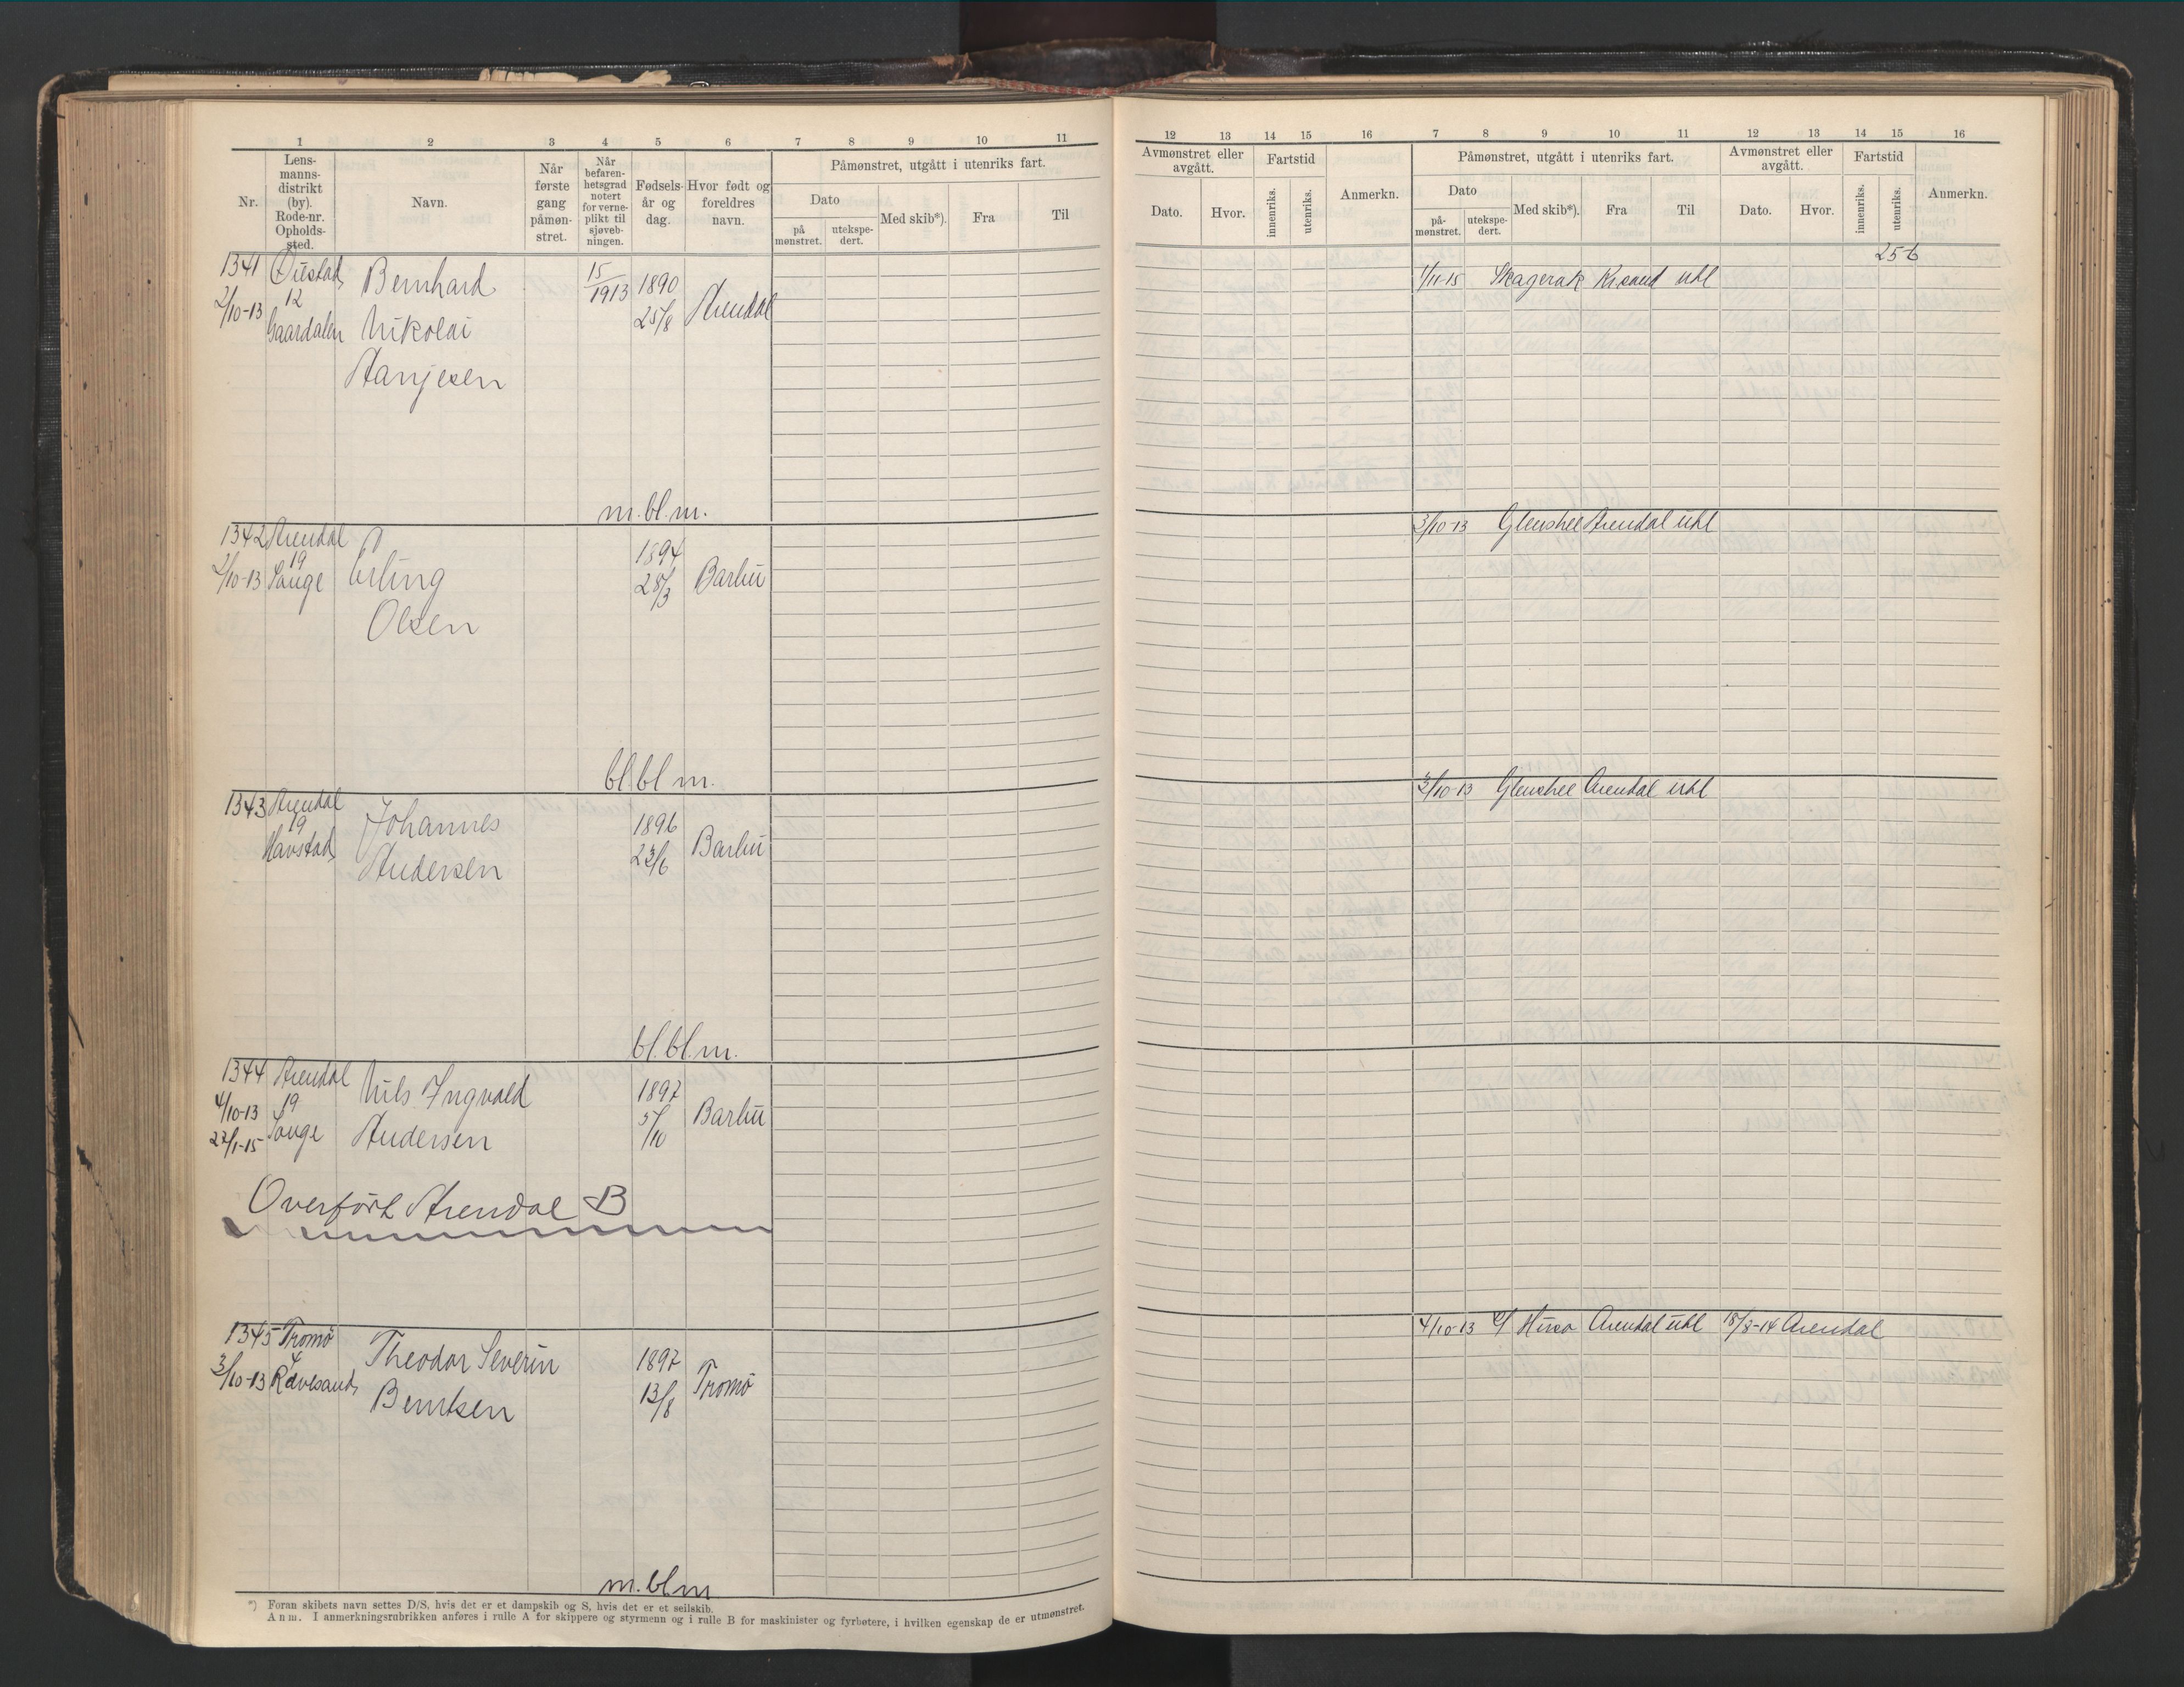 1 2 3 4 5 6 7 8 9 10 11
Nr.
Lens-
manns-
distrikt
(by).
Rode-nr.
Opholds-
sted.
Navn.
Når
første
gang
påmøn-
stret.
Når
befaren-
hetsgrad
notert
for verne-
plikt til
sjøveb-
ningen.
Fødsels-
år og
dag.
Hvor født og
foreldres
navn.
Påmønstret, utgått i utenriks fart.
Dato
på
mønstret.
utekspe-
dert.
Med skib*).
Fra
Til
1341 Øiestad
2/10-13 12
Gaardalen
Bernhard
Nikolai
Aanjesen
15/1913
1890
25/8
Arendal
m. bl. m.
1342 Arendal
2/10-13 19
Songe
Erling
Olsen
1894
28/3
Barbu
bl. bl. m.
1343 Arendal
19
Havstad
Johannes
Andersen
1896
23/6
Barbu
bl. bl. m.
1344 Arendal
4/10-13 19
22/1-15 Songe
Nils Ingvald
Andersen
1897
5/10
Barbu
Overført Arendal B
1345 Tromø
4
3/10-13 Revesand
Theodor Severin
Berntsen
1897
13/8
Tromø
m. bl. m
*) Foran skibets navn settes D/S, hvis det er et dampskib og S, hvis det er et seilskib.
Anm. I anmerkningsrubrikken anføres i rulle A for skippere og styrmenn og i rulle B for maskinister og fyrbøtere, i hvilken egenskap de er utmønstret.
12 13 14 15 16 7 8 9 10 11 12 13 14 15 16
Avmønstret eller
avgått.
Dato.
Hvor.
Fartstid
innenriks.
utenriks.
Anmerkn.
Påmønstret, utgått i utenriks fart.
Dato
på-
mønstret.
utekspe-
dert.
Med skib*).
Fra
Til
Avmønstret eller
avgått.
Dato.
Hvor.
Fartstid
innenriks.
utenriks.
Anmerkn.
25-6
1/11-15 Skagerak Krsand utl
3/10-13 Glenshee Arendal utl
3/10-13 Glenshee Arendal utl
4/10-13 Arendal utl 18/8-14 Arendal